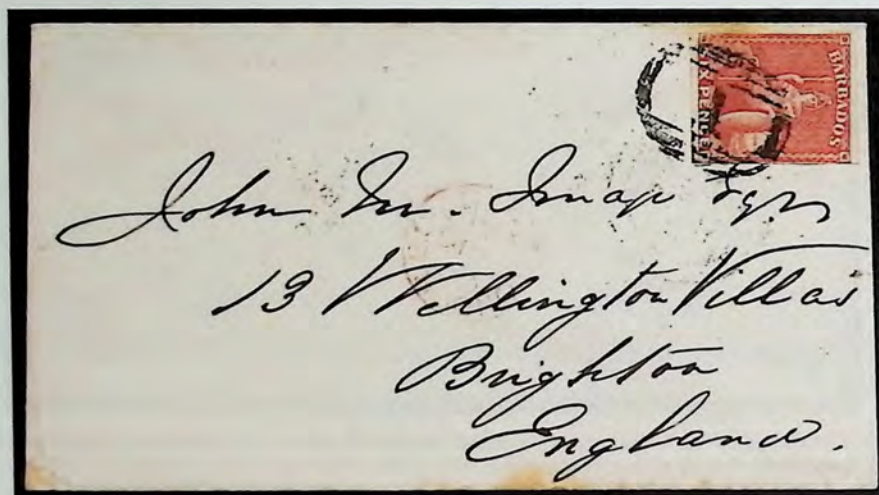 BARBADOS
SIX PENCE
John M. Esqr
13 Wellington Villas
Brighton
England.